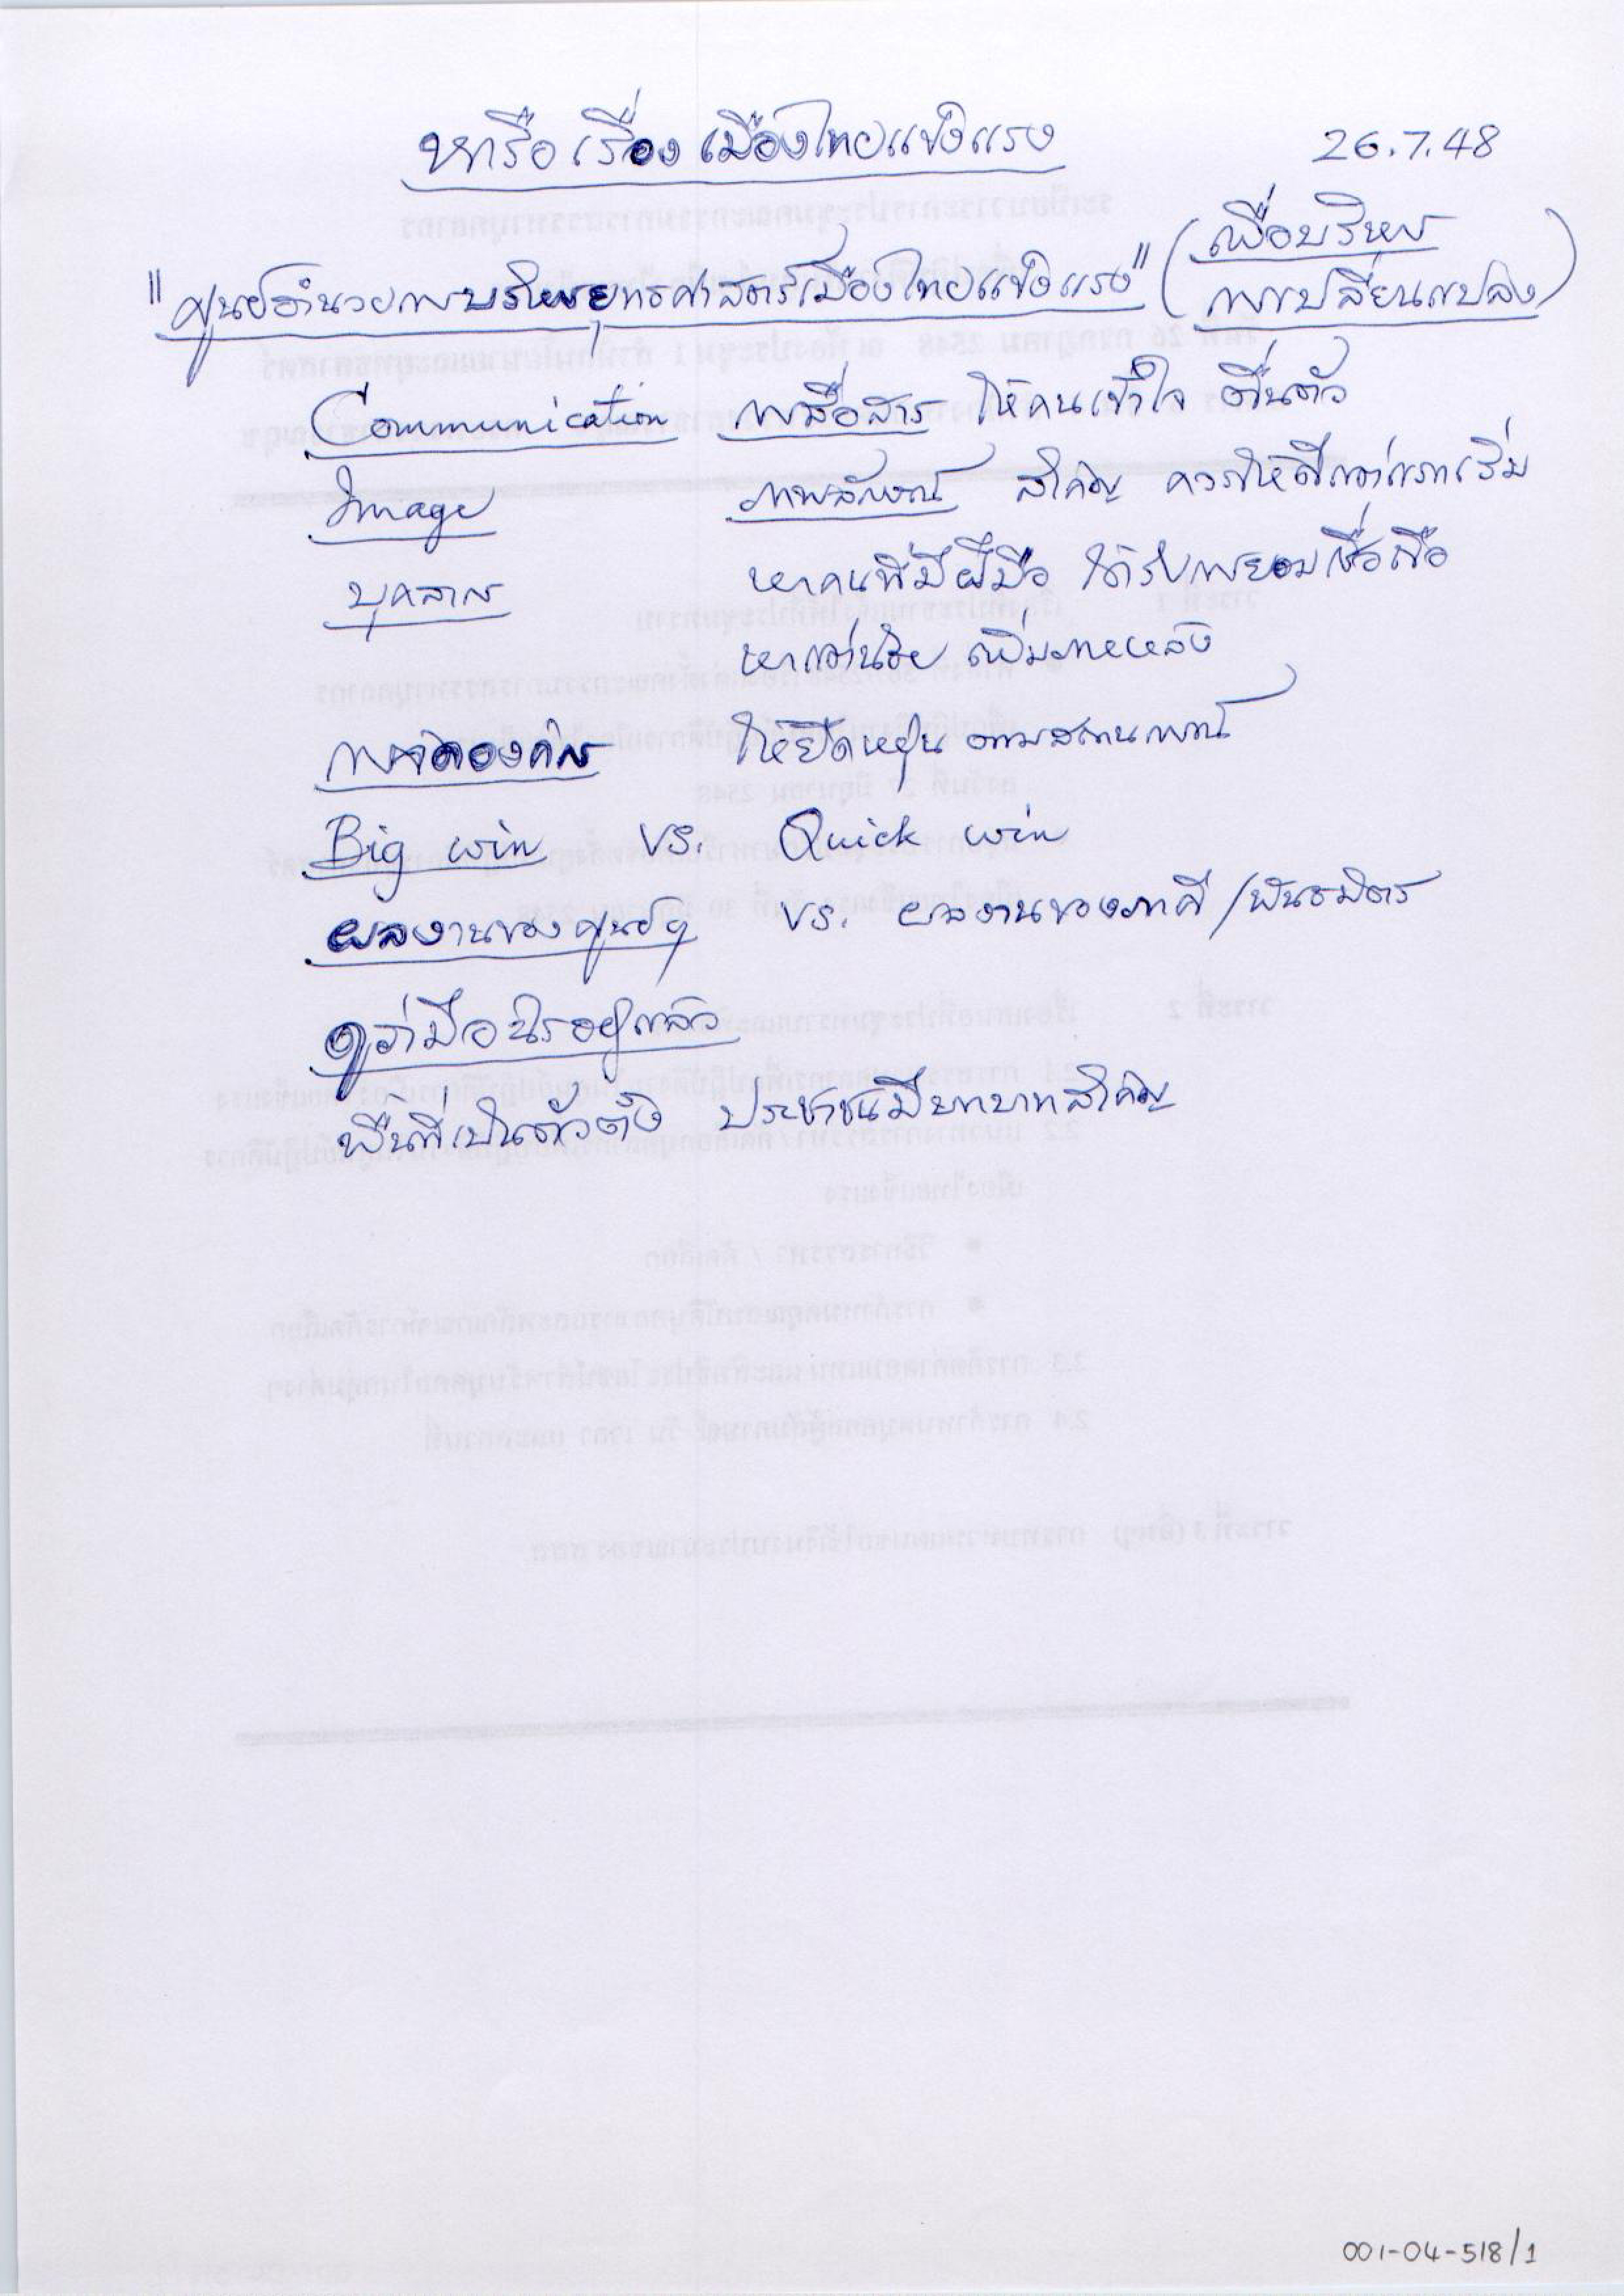 หารือ เรื่อง เมืองไทยแข็งแรง 26.7.48
"ศูนย์อำนวยการบริหารยุทธศาสตร์เมืองไทยแข็งแรง" (เพื่อบริหาร
การเปลี่ยนแปลง)
Communication การสื่อสาร ให้คนเข้าใจ ตื่นตัว
Image ภาพลักษณ์ สำคัญ ควรให้ดีแต่แรกเริ่ม
บุคลากร หาคนที่มีฝีมือ ได้รับการยอมเชื่อถือ
หาแต่น้อย เพิ่มภายหลัง
การจัดองค์กร ให้ยืดหยุ่น ตามสถานการณ์
Big win vs. Quick win
ผลงานของศูนย์ฯ vs. ผลงานของภาคี/พันธมิตร
ดูว่ามีอะไรอยู่แล้ว
พื้นที่เป็นตัวตั้ง ประชาชนมีบทบาทสำคัญ
001-04-518/1